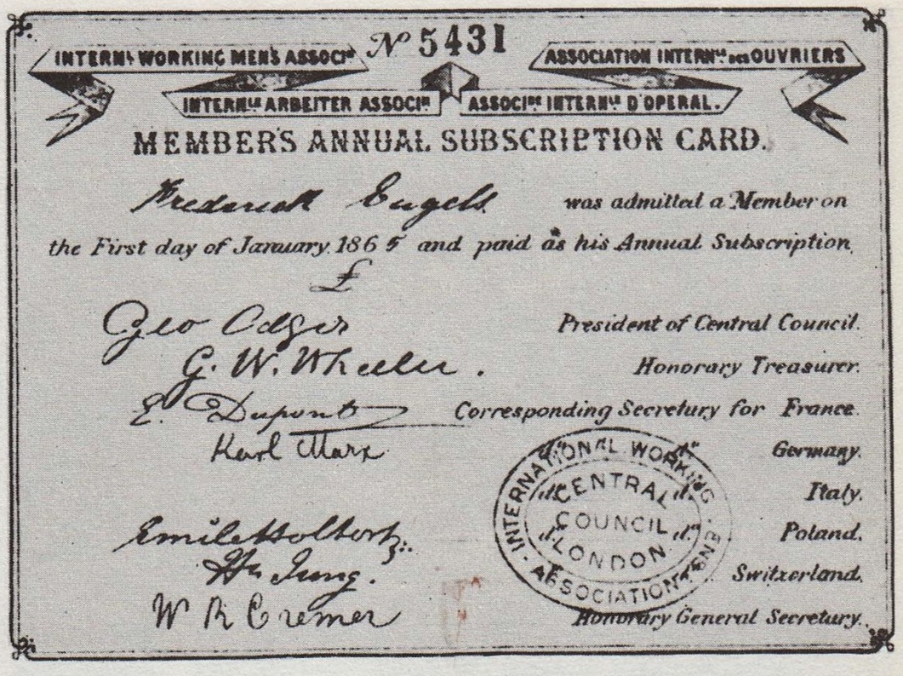 № 5431
INTERNL WORKING MEN'S ASSOCIN
ASSOCIATION INTERNLE DES OUVRIERS
INTERNLE ARBEITER ASSOCIN
ASSOCINE INTERNLE D'OPERAI.
MEMBER'S ANNUAL SUBSCRIPTION CARD.
Frederick Engels was admitted a Member on
the First day of January 1865 and paid as his Annual Subscription
£
Geo Odger President of Central Council.
G. W. Wheeler. Honorary Treasurer.
E. Dupont Corresponding Secretary for France.
Karl Marx Germany.
Italy.
Emile Holtorp Poland.
Hn Jung. Switzerland.
W R Cremer Honorary General Secretary.
INTERNATIONAL WORKING
ASSOCIATION
CENTRAL
COUNCIL
LONDON